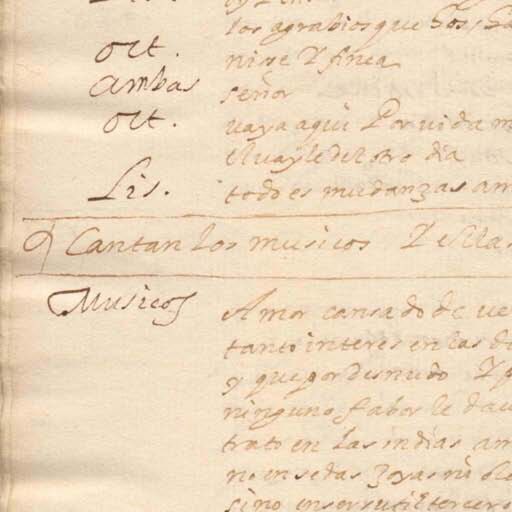 los agrabios que
Oct. nise y finea
Ambas señor
Oct. vaya aqui Por vida
el vayle del otro dia
Lis. todo es mudanzas am
Cantan los musicos Y ellas
Musicos Amor cansado de ve
tanto interes en las d
y que por desnudo Y
ninguno fabor le da
trato en las indias am
no en sedas Joyas ni
sino en ser sutil tercero